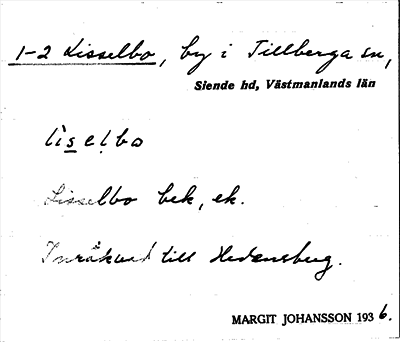 1-2 Lisselbo, by i Tillberga sn,
Siende hd, Västmanlands län
lìselbo
Lisselbo bek, ek.
Inräknad till Hedensberg.
MARGIT JOHANSSON 1936.